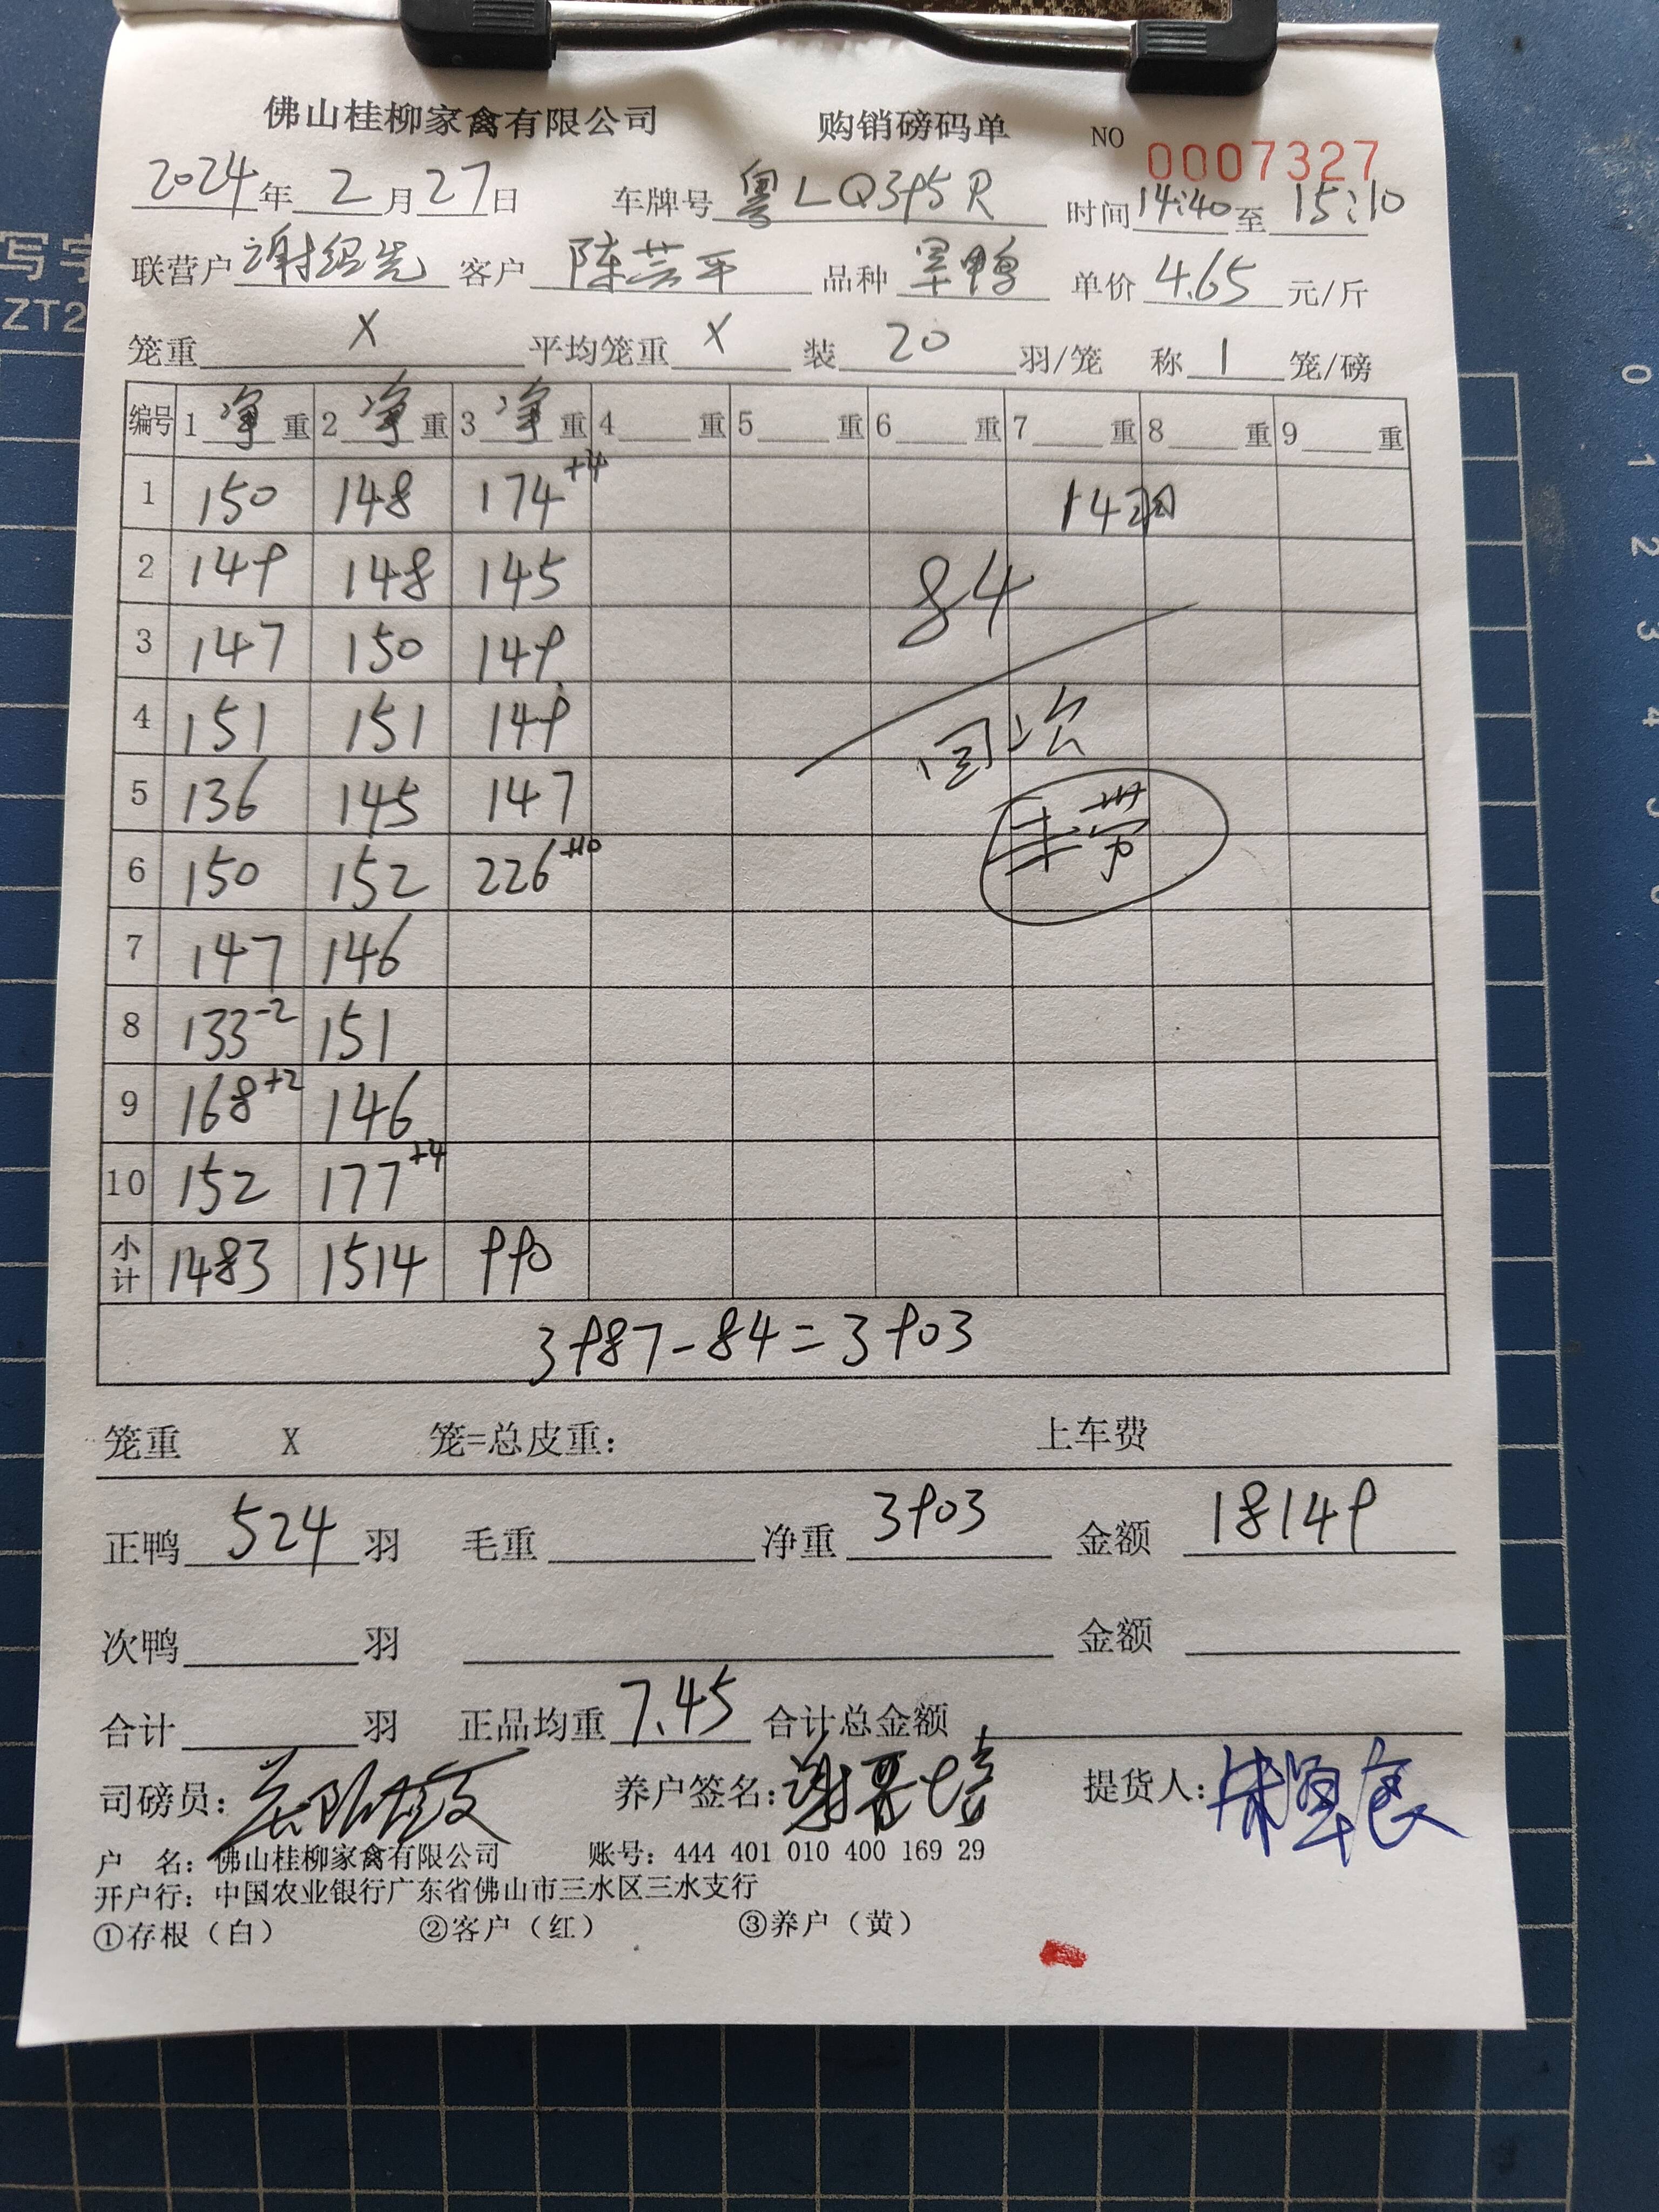 佛山桂柳家禽有限公司 购销磅码单 NO 0007327
2024年2月27日 车牌号 粤LQ395R 时间14:40至15:10
联营户 谢绍先 客户 陈芸平 品种 旱鸭 单价 4.65 元/斤
笼重 X 平均笼重 X 装 20 羽/笼 称 1 笼/磅
编号 1 净 重 2 净 重 3 净 重 4 重 5 重 6 重 7 重 8 重 9 重
1 150 148 174+4 14羽
2 149 148 145 84
3 147 150 149
4 151 151 149 回次
5 136 145 147
6 150 152 226+10
7 147 146
8 133-2 151
9 168+2 146
10 152 177+4
小计 1483 1514 990
3987-84=3903
笼重 X 笼=总皮重: 上车费
正鸭 524 羽 毛重 净重 3903 金额 18149
次鸭 羽 金额
合计 羽 正品均重 7.45 合计总金额
司磅员: 养户签名: 提货人:
户 名: 佛山桂柳家禽有限公司 账号: 444 401 010 400 169 29
开户行: 中国农业银行广东省佛山市三水区三水支行
①存根(白) ②客户(红) ③养户(黄)
写字
ZT2
0 1 2 3 4 5 6